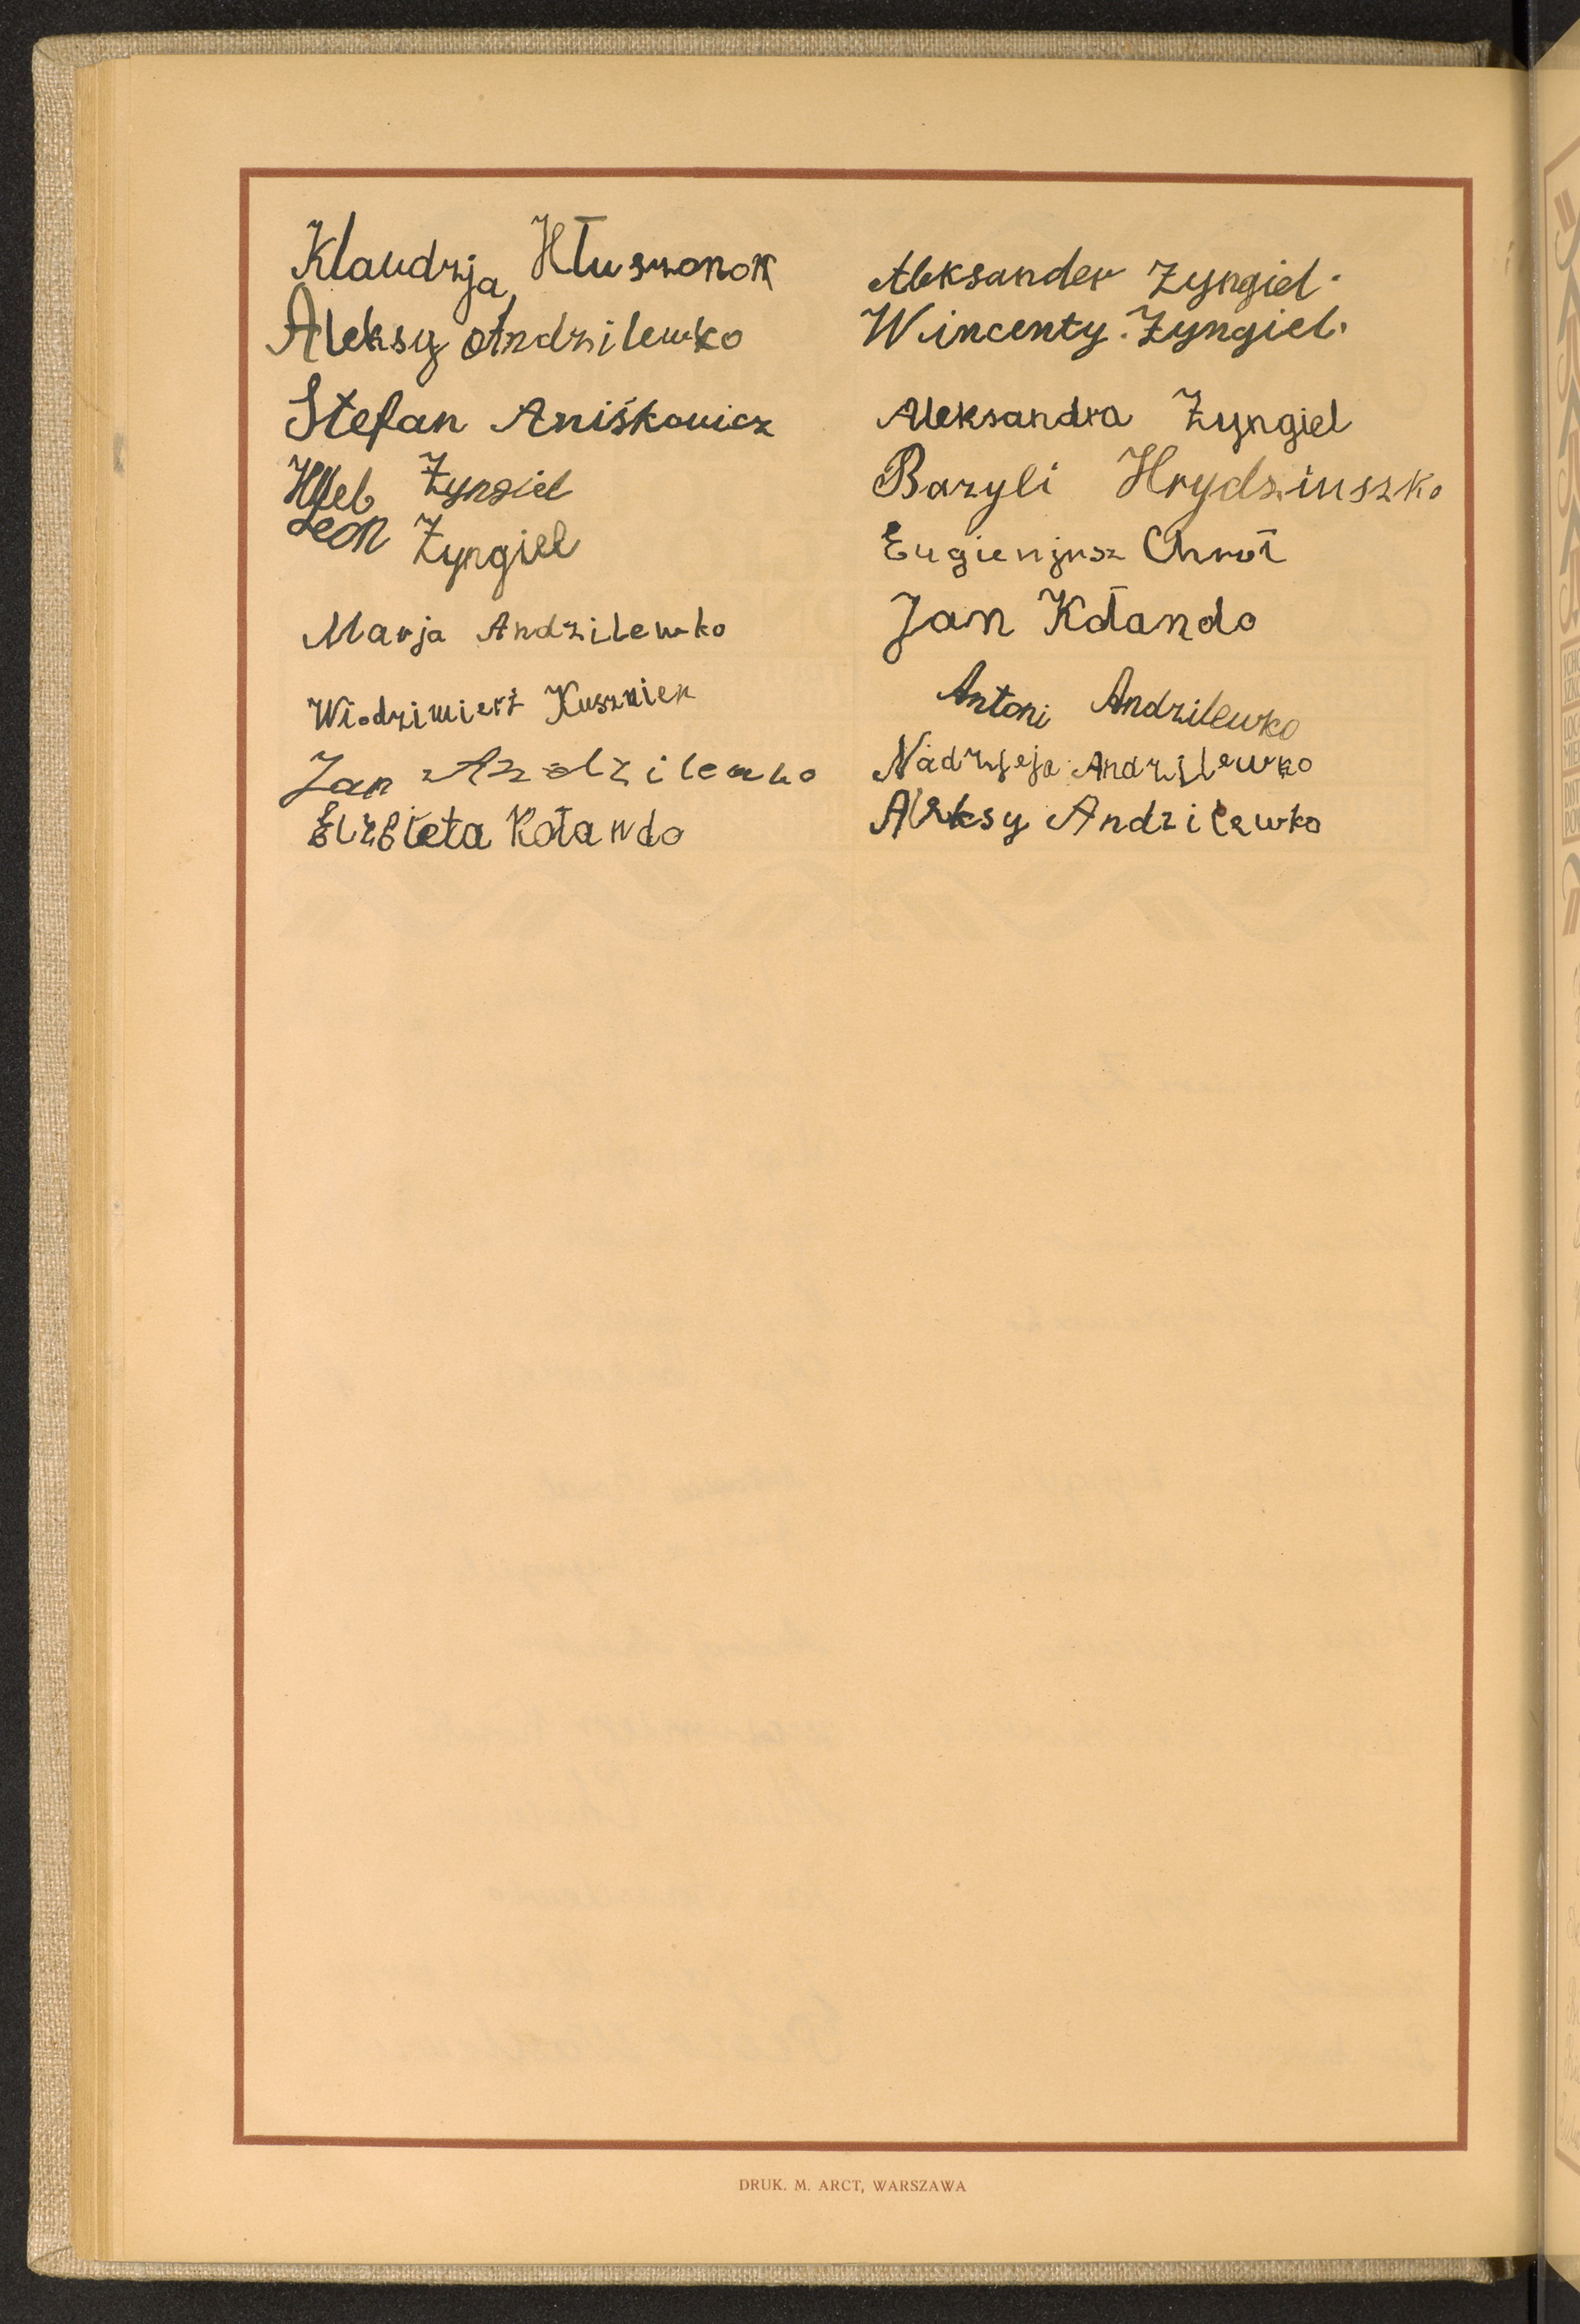 Klaudzja Hłuszonok
Aleksy Andzilewko
Stefan Aniśkowicz
Hleb Zyngiel
Leon Zyngiel
Marja Andzilewko
Włodzimierz Kusznier
Jan Andzilewko
Elzbieta Kołando
Aleksander Zyngiel.
Wincenty. Zyngiel.
Aleksandra Zyngiel
Bazyli Hrydziuszko
Eugienjusz Chroł
Jan Kołando
Antoni Andzilewko
Nadzieja Andzilewko
Aleksy Andzilewko
DRUK. M. ARCT, WARSZAWA